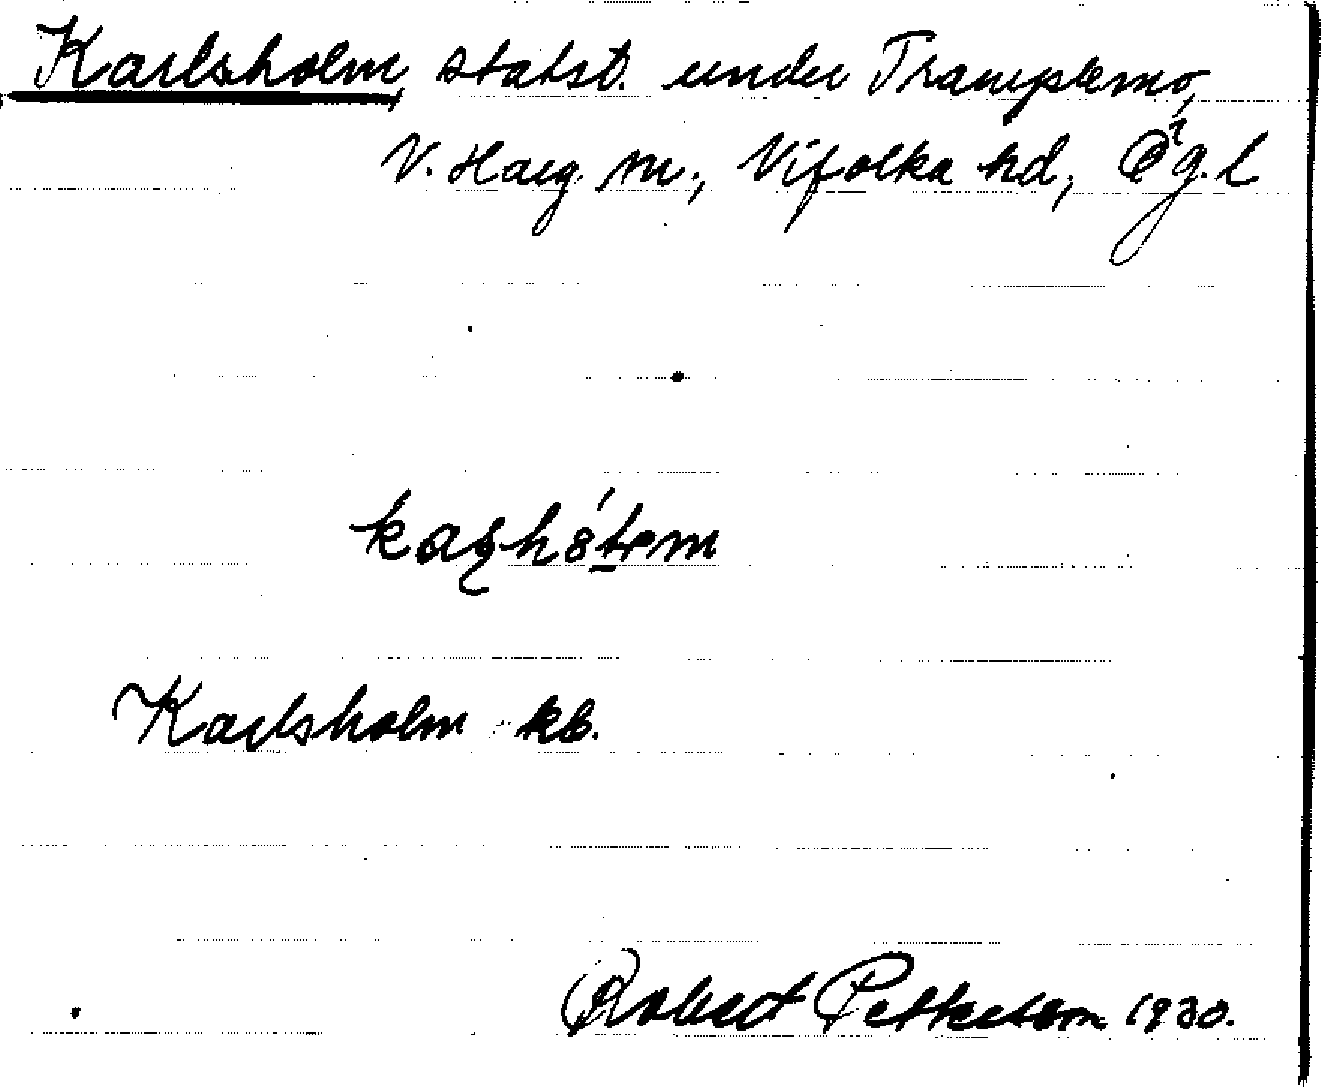 Karlsholm, statst. under Trampelmo,
V. Harg. sn., Vifolka hd, Ög. l
Karlsholm kb.
Robert Pettersson 1930.